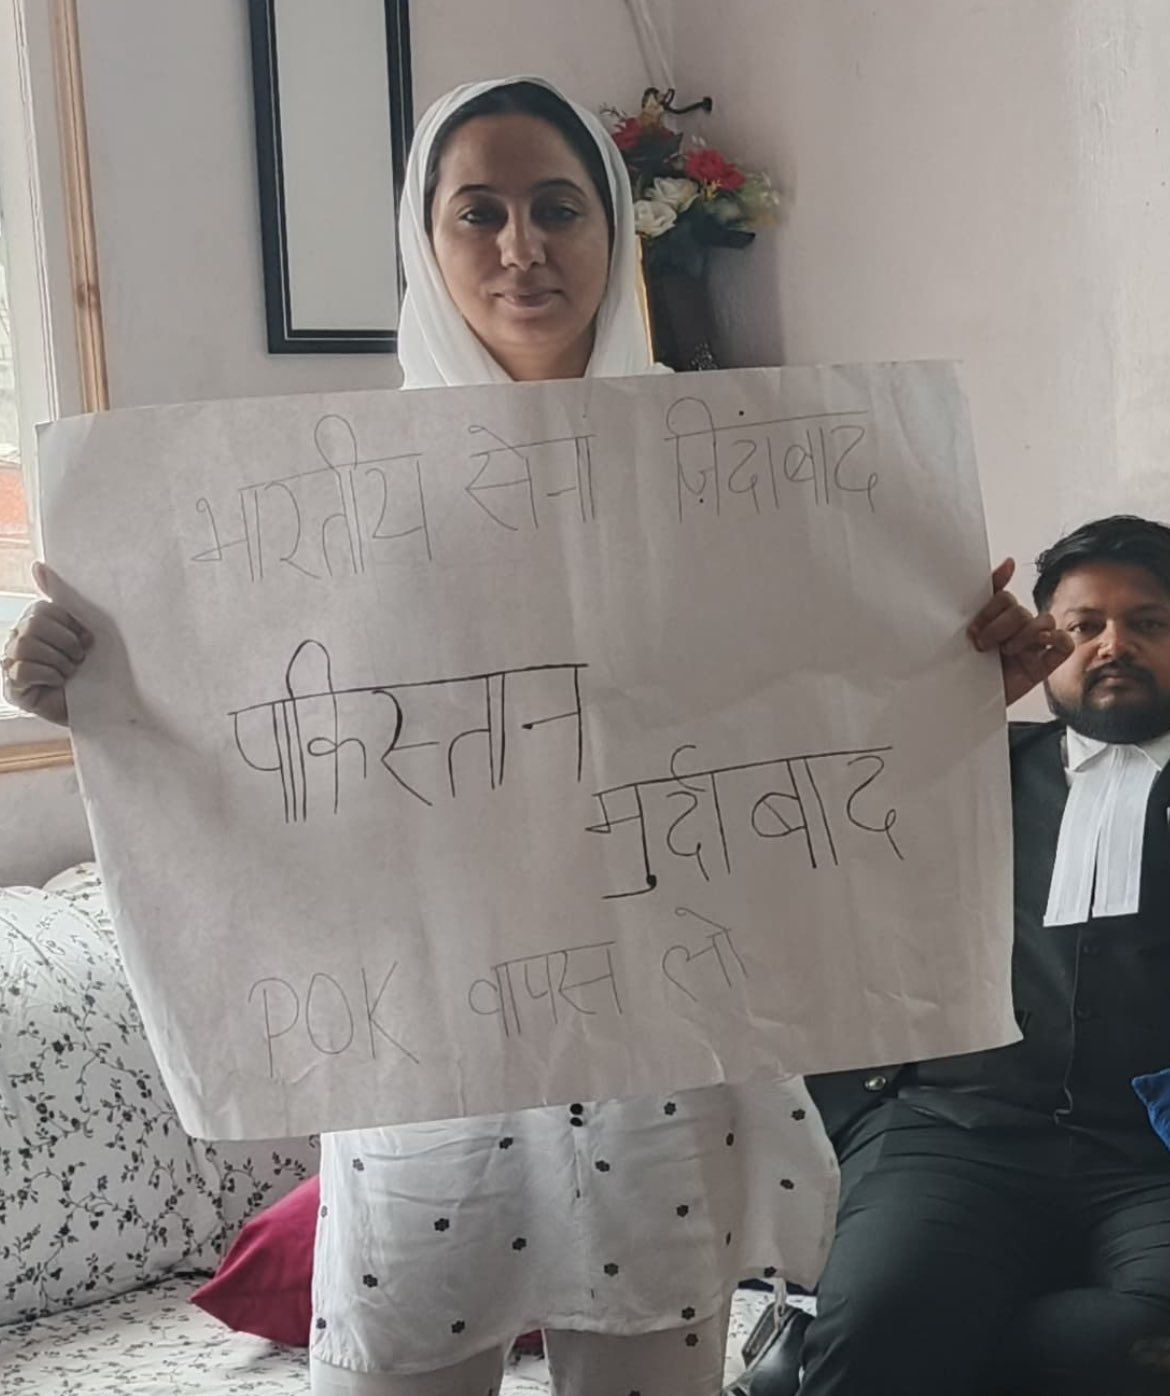 भारतीय सेनां ज़िंदाबाद
पाकिस्तान
मुर्दाबाद
POK वापस लो